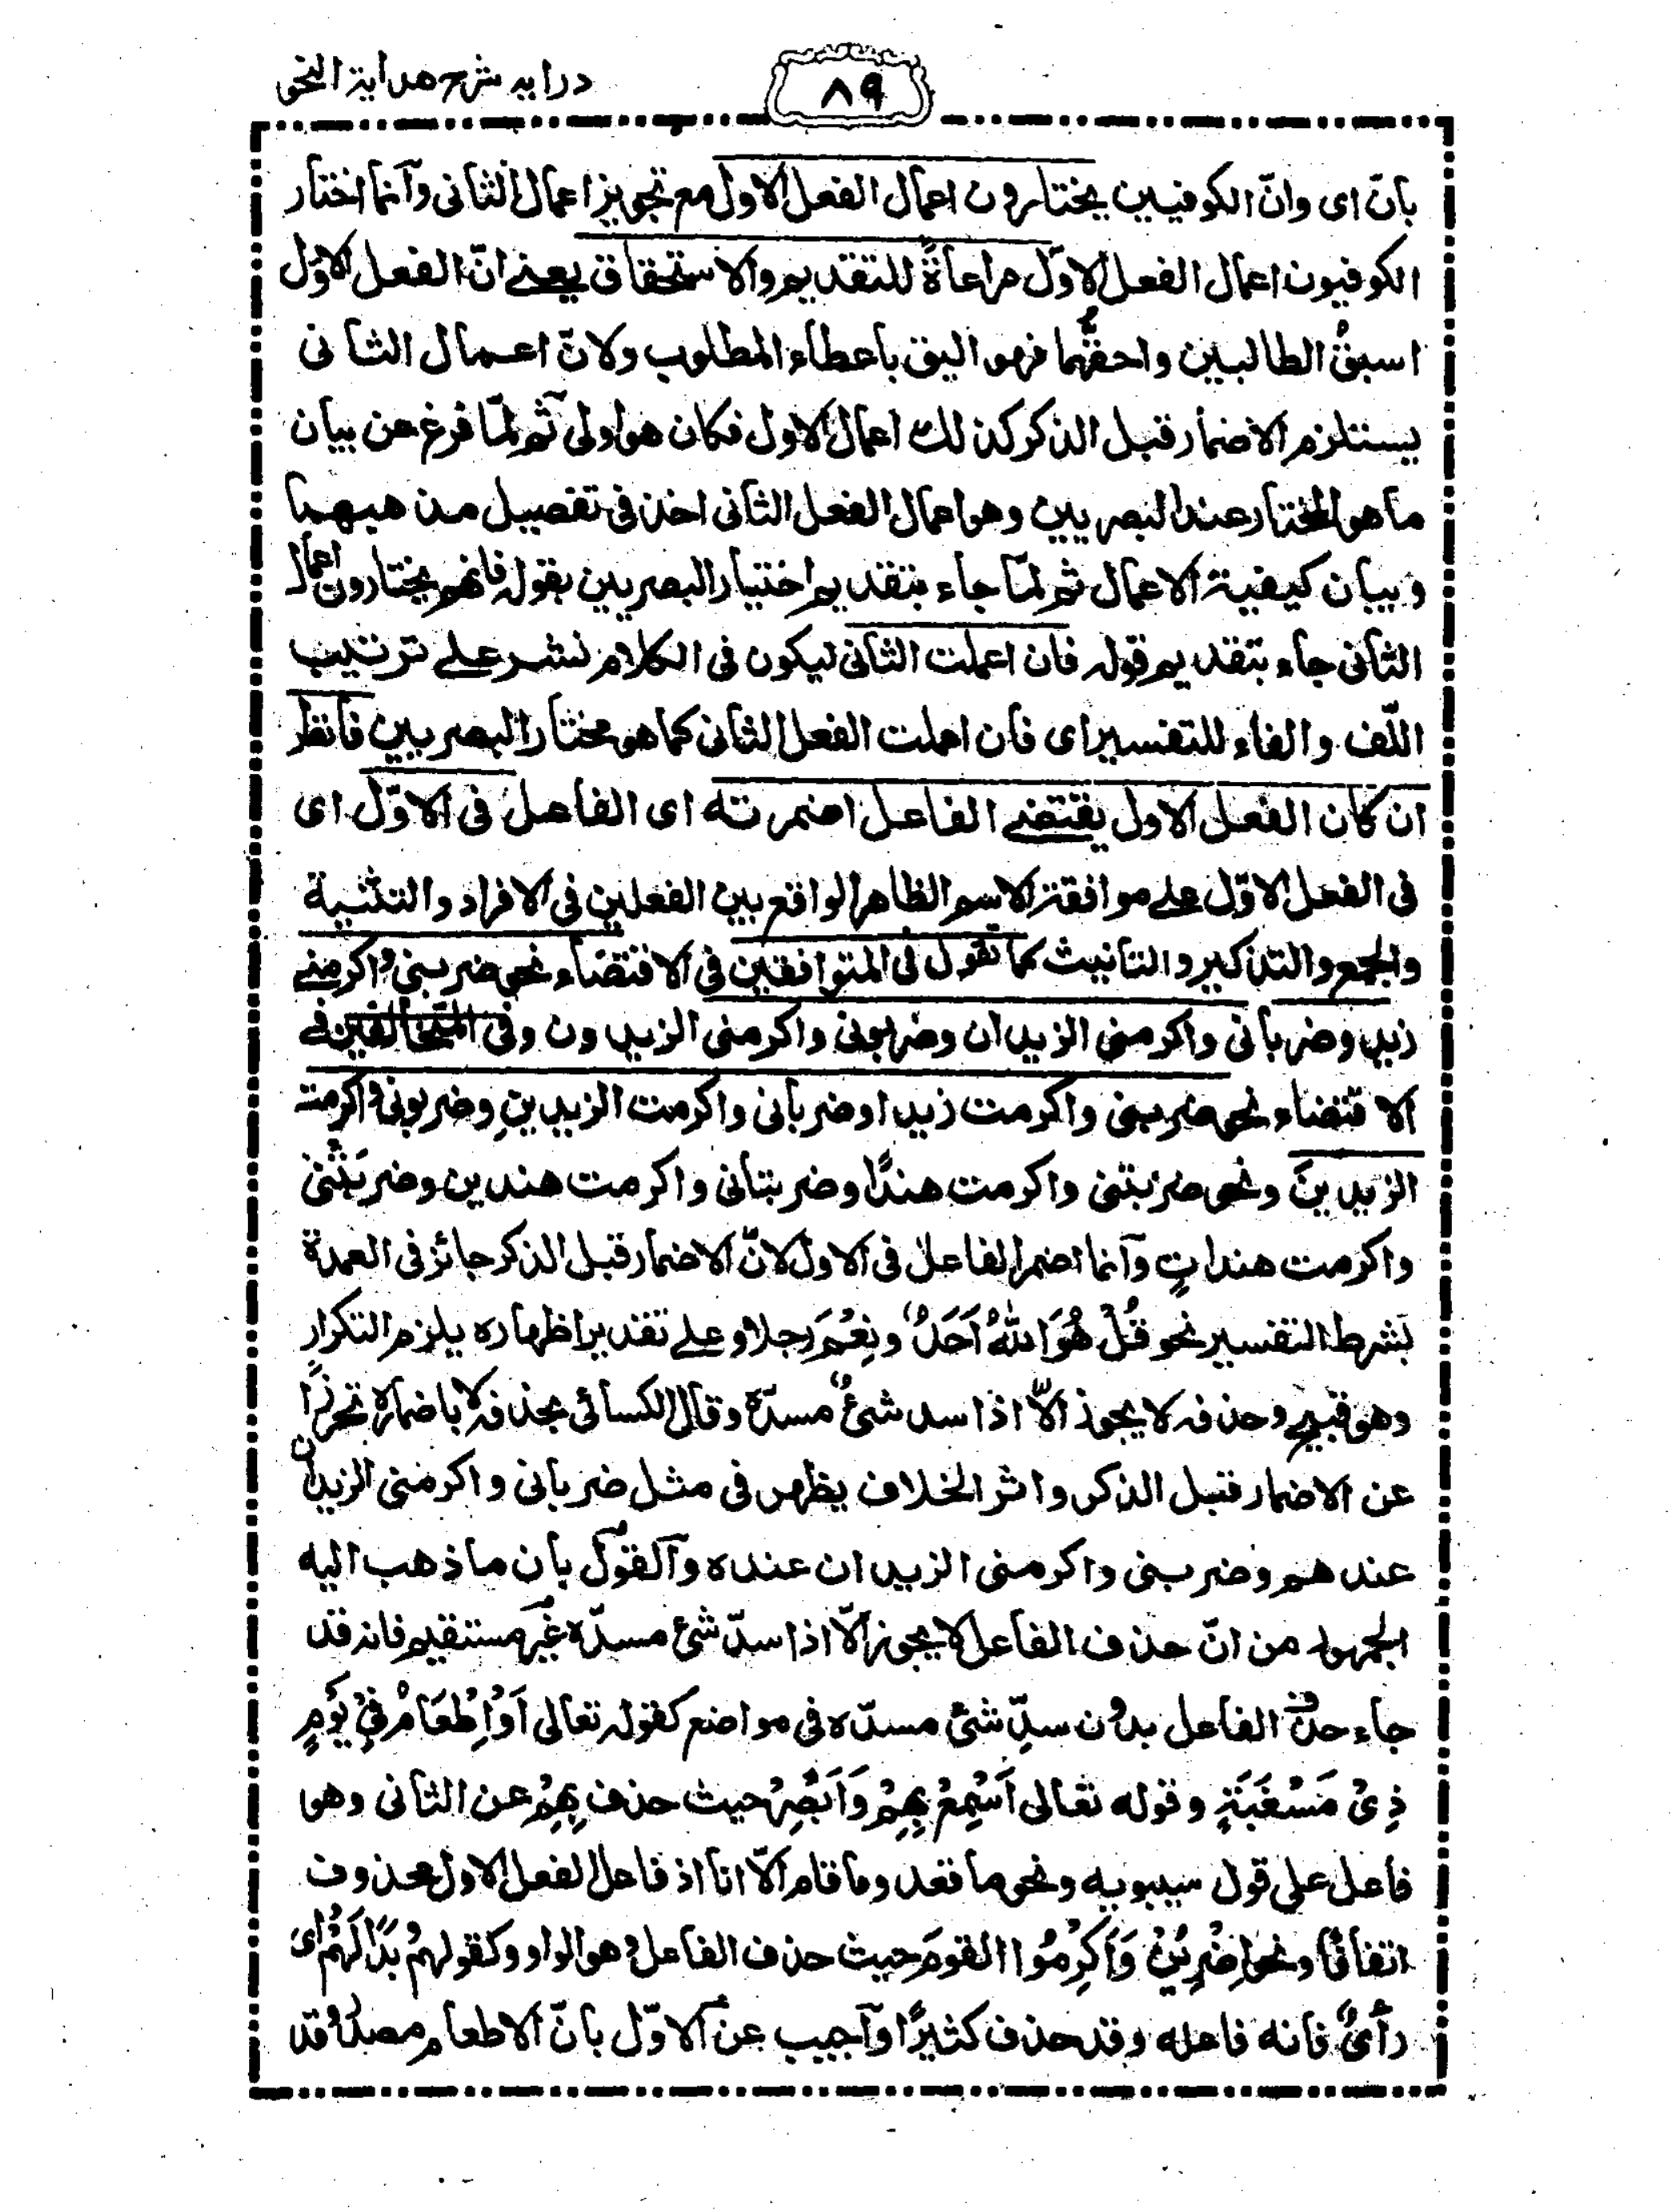 درایه شرح هدایة النحو
۸۹
بانّ ای وانّ الکوفیین یختارون اعمال الفعل الاول مع تجویز اعمال الثانی وآنما اختار
الکوفیون اعمال الفعل الاوّل مراعاةً للتقدیم والاستحقاق یعنے انّ الفعل الاوّل
اسبقُ الطالبین واحقُّهما فهو الیق باعطاء المطلوب ولانّ اعمال الثانی
یستلزم الاضمار قبل الذکر کذلک اعمال الاول فکان هو اولی ثم لمّا فرغ عن بیان
ما هو المختار عند البصریین وهو اعمال الفعل الثانی اخذ فی تفصیل مذهبهما
وبیان کیفیة الاعمال ثم لمّا جاء بتقدیم اختیار البصریین بقوله فانهم یختارون اعمال
الثانی جاء بتقدیم قوله فان اعملت الثانی لیکون فی الکلام نشر علے ترتیب
اللّف والفاء للتفسیر ای فان اعملت الفعل الثانی کما هو مختار البصریین فانظر
ان کان الفعل الاول یقتضے الفاعل اضمرته ای الفاعل فی الاوّل ای
فی الفعل الاوّل علے موافقة الاسم الظاهر الواقع بین الفعلین فی الافراد والتثنیة
والجمع والتذکیر والتانیث کما تقول فی المتوافقین فی الاقتضاء نحو ضربنی واکرمنے
زید وضربانی واکرمنی الزیدان وضربونی واکرمنی الزیدون وفی المتخالفین فے
الاقتضاء نحو ضربنی واکرمت زیدا وضربانی واکرمت الزیدینِ وضربونی واکرمت
الزیدِینَ ونحو ضربتنی واکرمت هندًا وضربتانی واکرمت هندین وضربننی
واکرمت هنداتٍ وآنما اضمر الفاعل فی الاول لانّ الاضمار قبل الذکر جائز فی العمدة
بشرط التفسیر نحو قُلْ هُوَ اللّٰهُ اَحَدٌ ونِعْمَ رجلا وعلے تقدیر اظهاره یلزم التکرار
وهو قبیح وحذفه لا یجوز الّا اذا سد شئٌ مسدّه وقال الکسائی بحذفه لا باضماره تحرزًا
عن الاضمار قبل الذکر واثر الخلاف یظهر فی مثل ضربانی واکرمنی الزیدان
عندهم وضربنی واکرمنی الزیدان عنده وآلقول بان ما ذهب الیه
الجمهور من انّ حذف الفاعل لا یجوز الّا اذا سدّ شئ مسدّه غیر مستقیم فانه قد
جاء حذف الفاعل بدون سدِّ شئ مسدّه فی مواضع کقوله تعالی اَوْ اِطْعَامٌ فِیْ یَوْمٍ
ذِیْ مَسْغَبَةٍ وقوله تعالی اَسْمِعْ بِهِمْ وَاَبْصِرْ حیث حذف بِهِمْ عن الثانی وهو
فاعل علی قول سیبویه ونحو ما قعد وما قام الّا انا اذ فاعل الفعل الاول محذوف
اتفاقًا ونحو اِضْرِبُنْ وَاَکْرِمُوا القومَ حیث حذف الفاعل وهو الواو وکقولهم بَدَا لَهُمْ ای
رأیٌ فانه فاعله وقد حذف کثیرًا وآجیب عن الاوّل بانّ الاطعام مصدر وقد